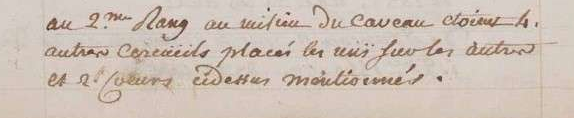 au 2.me Rang au milieu du caveau etoient 4.
autres cercüeils placés les uns sur les autres
et 2. Coeurs cidessus mentionnés.